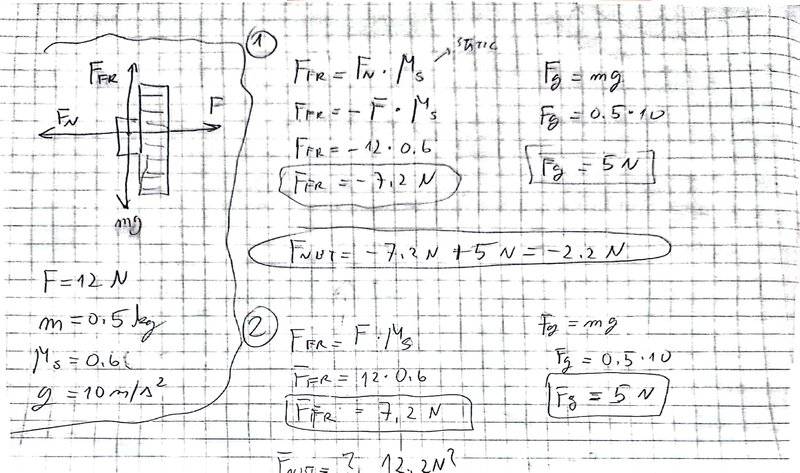 F_FR
F_N
F
mg
F = 12 N
m = 0.5 kg
μ_s = 0.6
g = 10 m/s²
1
F_FR = F_N · μ_s
STATIC
F_FR = - F · μ_s
F_FR = - 12 · 0.6
F_FR = - 7.2 N
F_g = mg
F_g = 0.5 · 10
F_g = 5 N
F_NET = - 7.2 N + 5 N = - 2.2 N
2
F_FR = F · μ_s
F_FR = 12 · 0.6
F_FR = 7.2 N
F_g = mg
F_g = 0.5 · 10
F_g = 5 N
F_NET = ? 12.2 N?